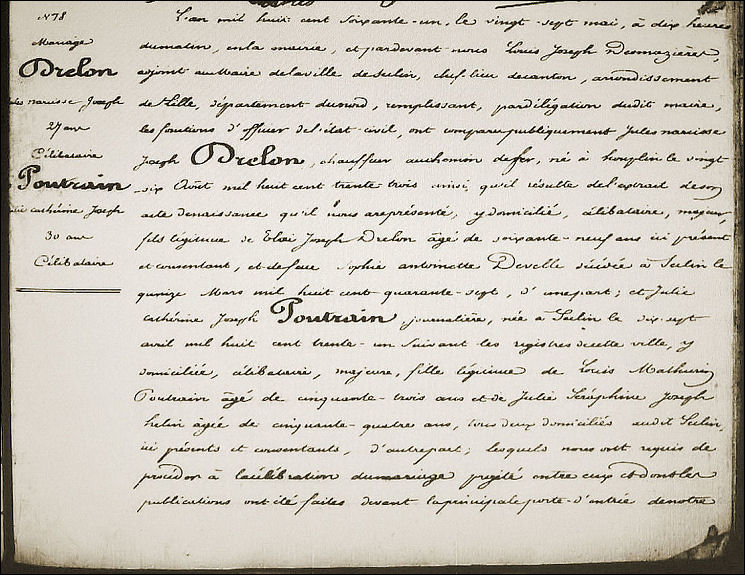 N° 78
Mariage
Drelon
Jules narcisse Joseph
27 ans
Célibataire
Poutrain
Julie cathérine Joseph
30 ans
Célibataire
L'an mil huit cent soixante-un, le vingt sept mai, à dix heures
du matin, en la mairie, et pardevant nous Louis Joseph Desmazières,
adjoint au Maire de la ville de Seclin, chef lieu de canton, arrondissement
de Lille, département du nord, remplissant, par délégation dudit maire,
les fonctions d'officier de l'état-civil, ont comparu publiquement Jules narcisse
Joseph Drelon, chauffeur au chemin de fer, né à houplin le vingt
-six Août mil huit cent trente trois ainsi, qu'il résulte de l'extrait de son
acte de naissance qu'il nous a représenté, y domicilié, célibataire, majeur,
fils légitime de Eloi Joseph Drelon âgé de soixante-neuf ans ici présent
et consentant, et de feue Sophie antoinette Develle décédée à Seclin le
quinze Mars mil huit cent quarante-sept, d'une part; et Julie
cathérine Joseph Poutrain journalière, née à Seclin le dix sept
avril mil huit cent trente-un suivant les registres de cette ville, y
domiciliée, célibataire, majeure, fille légitime de Louis Mathurin
Poutrain âgé de cinquante-trois ans et de Julie Séraphine Joseph
helin âgée de cinquante-quatre ans, tous deux domiciliés audit Seclin,
ici présents et consentants, d'autre part; lesquels nous ont requis de
procéder à la célébration du mariage projeté entre eux et dont les
publications ont été faites devant la principale porte d'entrée de notre